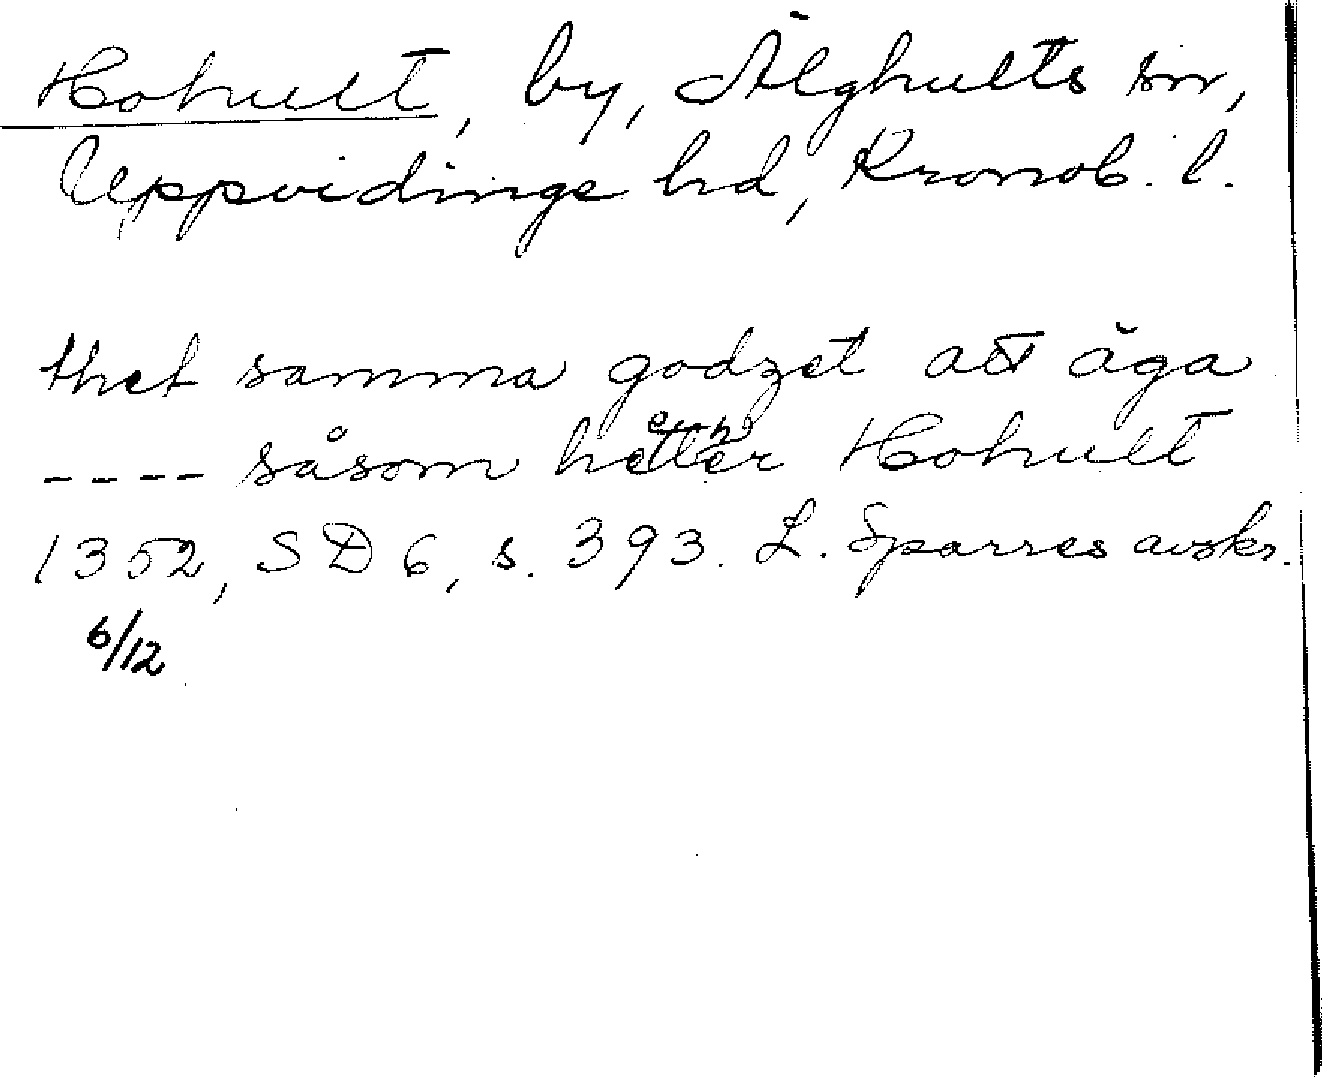 Hohult, by, Älghults sn,
Uppvidinge hd, Kronob. l.
thet samma godzet att äga
---- såsom hetter Hohult
1352, SD 6, s. 393. L. Sparres avskr.
6/12